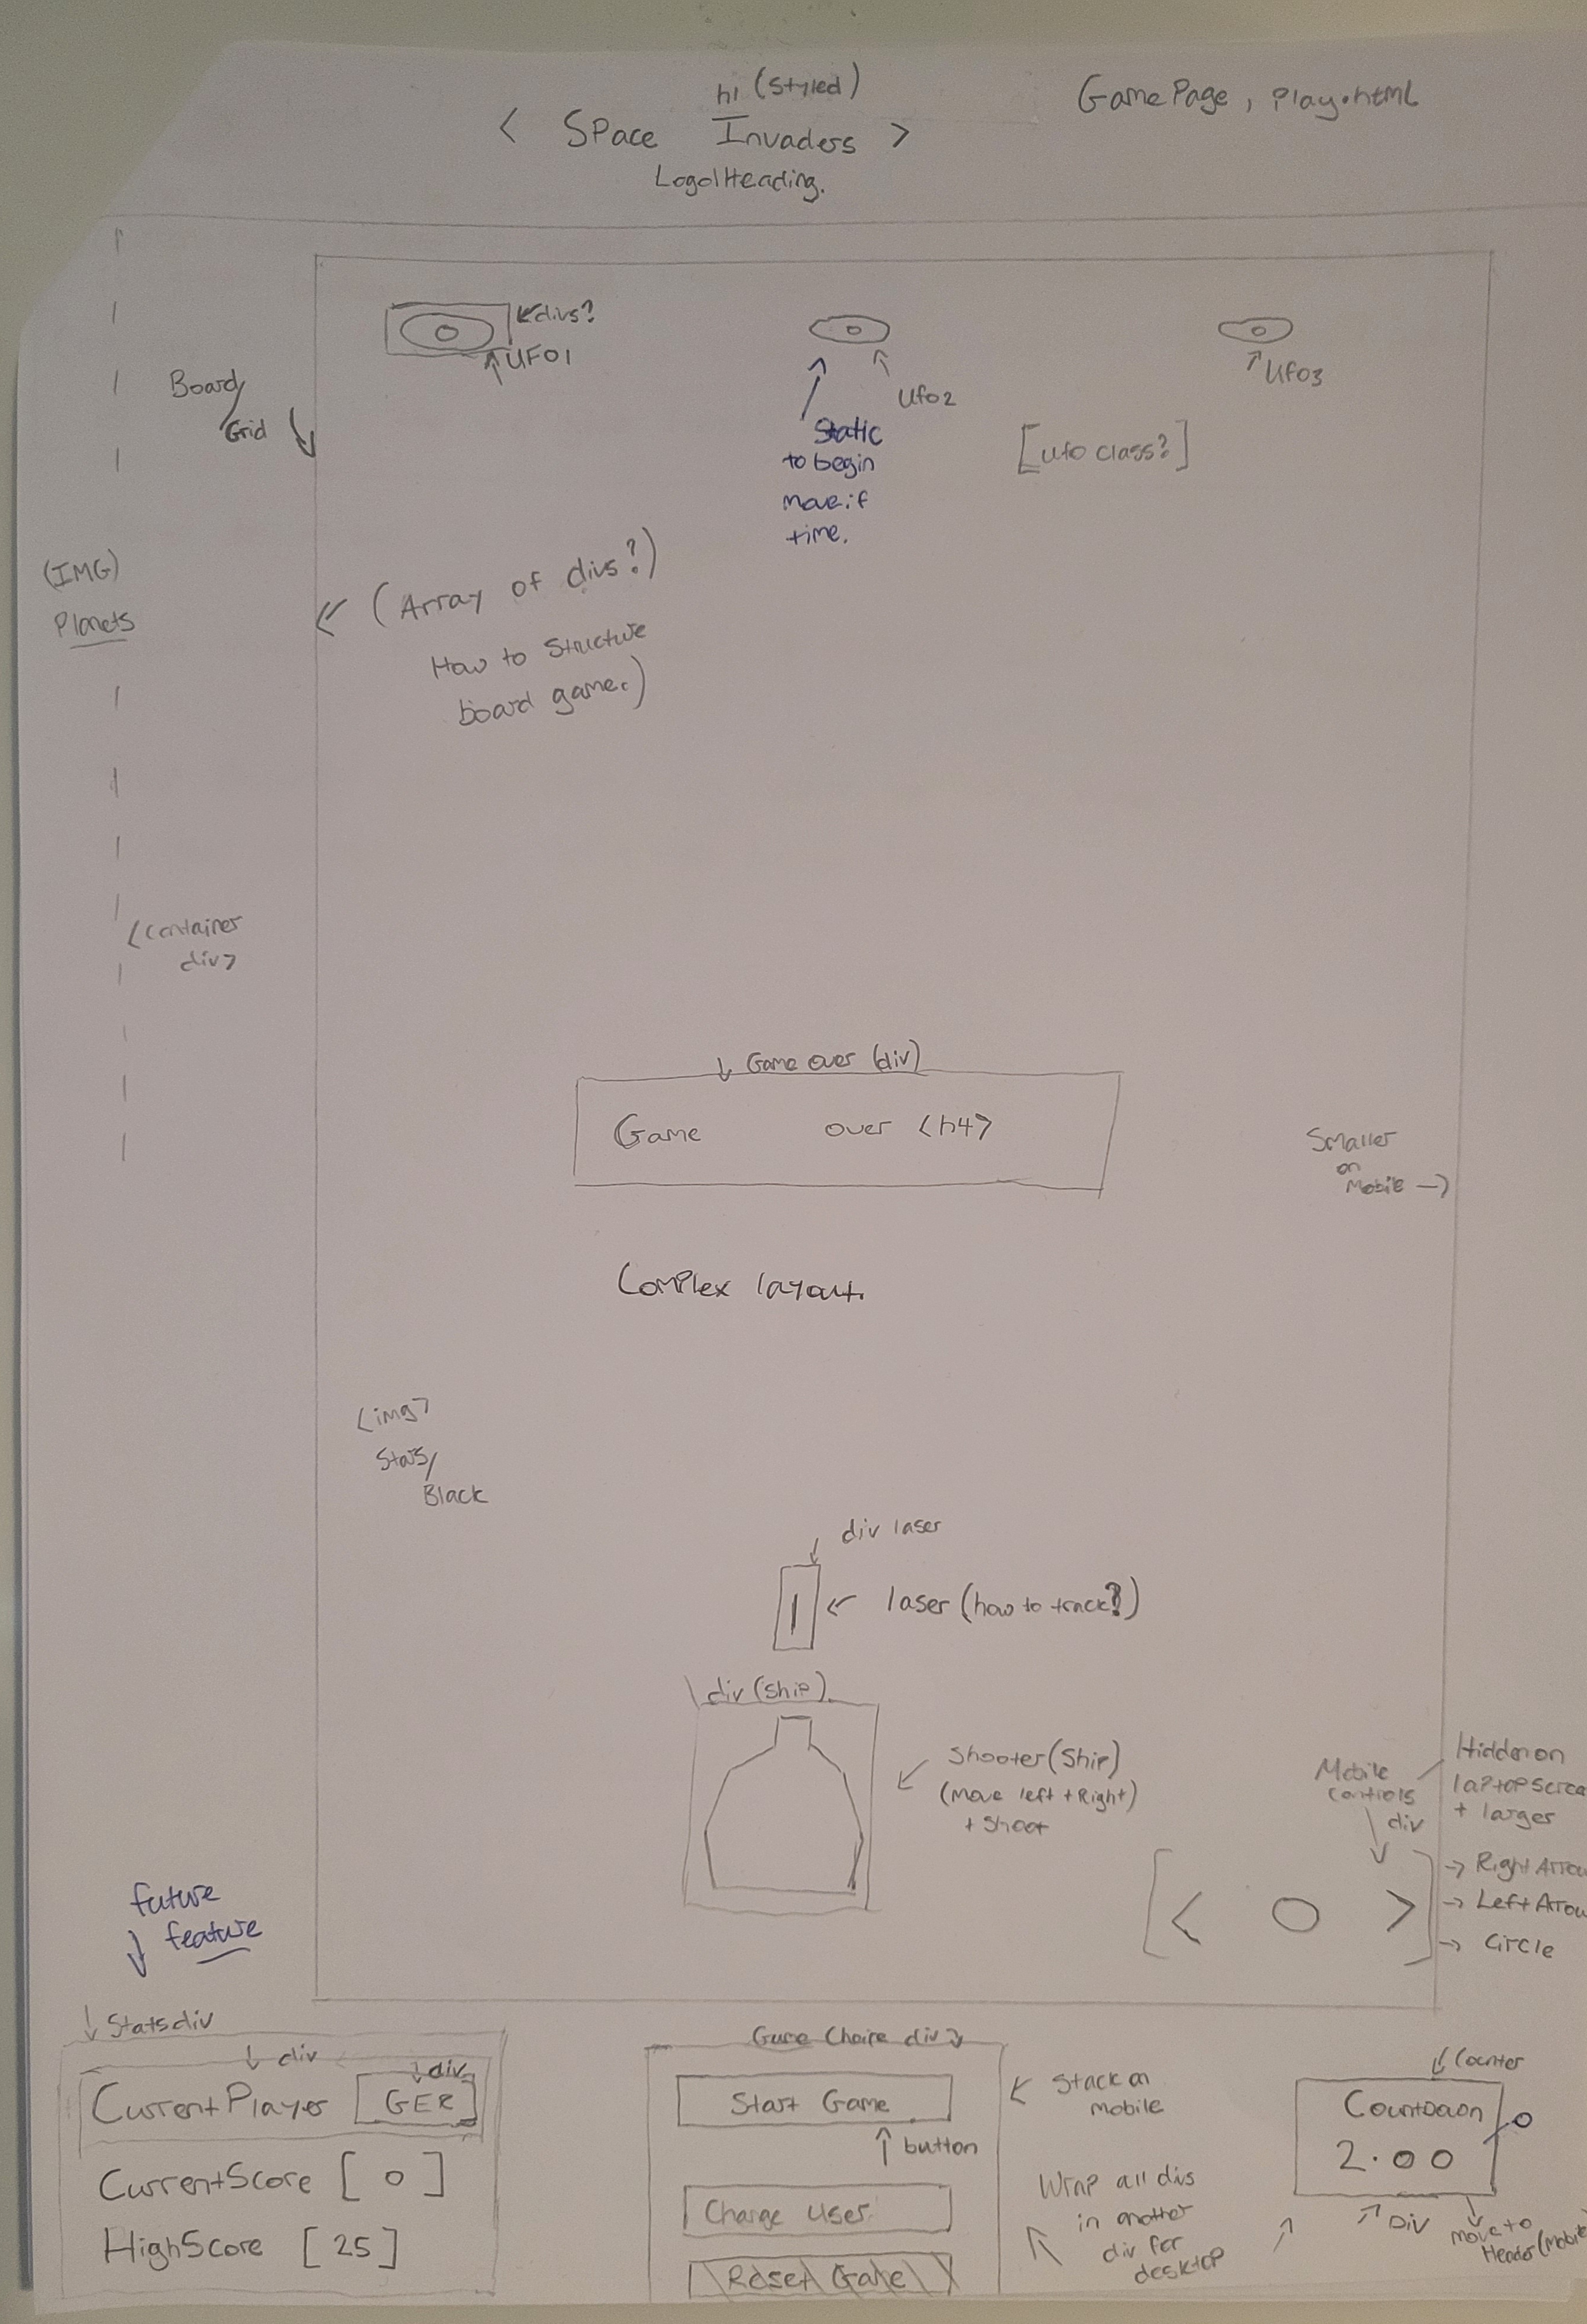 h1 (styled)
GamePage, Play.html
< SPace Invaders >
Logo/Heading.
<divs?
UFO1
Ufo2
Ufo3
Board/
Grid
Static
to begin
move if
time.
[ufo class?]
(IMG)
Planets
(Array of divs?)
How to Structure
board game.)
<container
div>
Game over (div)
Game over <h4>
Smaller
on
Mobile
Complex layout.
<img>
Stars/
Black
div laser
laser (how to track?)
div (ship)
Shooter (Ship)
(move left + Right)
+ shoot
Mobile
controls
div
Hidden on
laptop scree
+ larger
< O >
Right Arrow
Left Arrow
Circle
future
feature
Stats div
div
div
CurrentPlayer GER
CurrentScore [ 0 ]
HighScore [ 25 ]
Game Choice div
Start Game
button
Change User
Reset Game
Stack on
mobile
Wrap all divs
in another
div for
desktop
Counter
CountDown
2.00
Div
move to
Header (Mobile